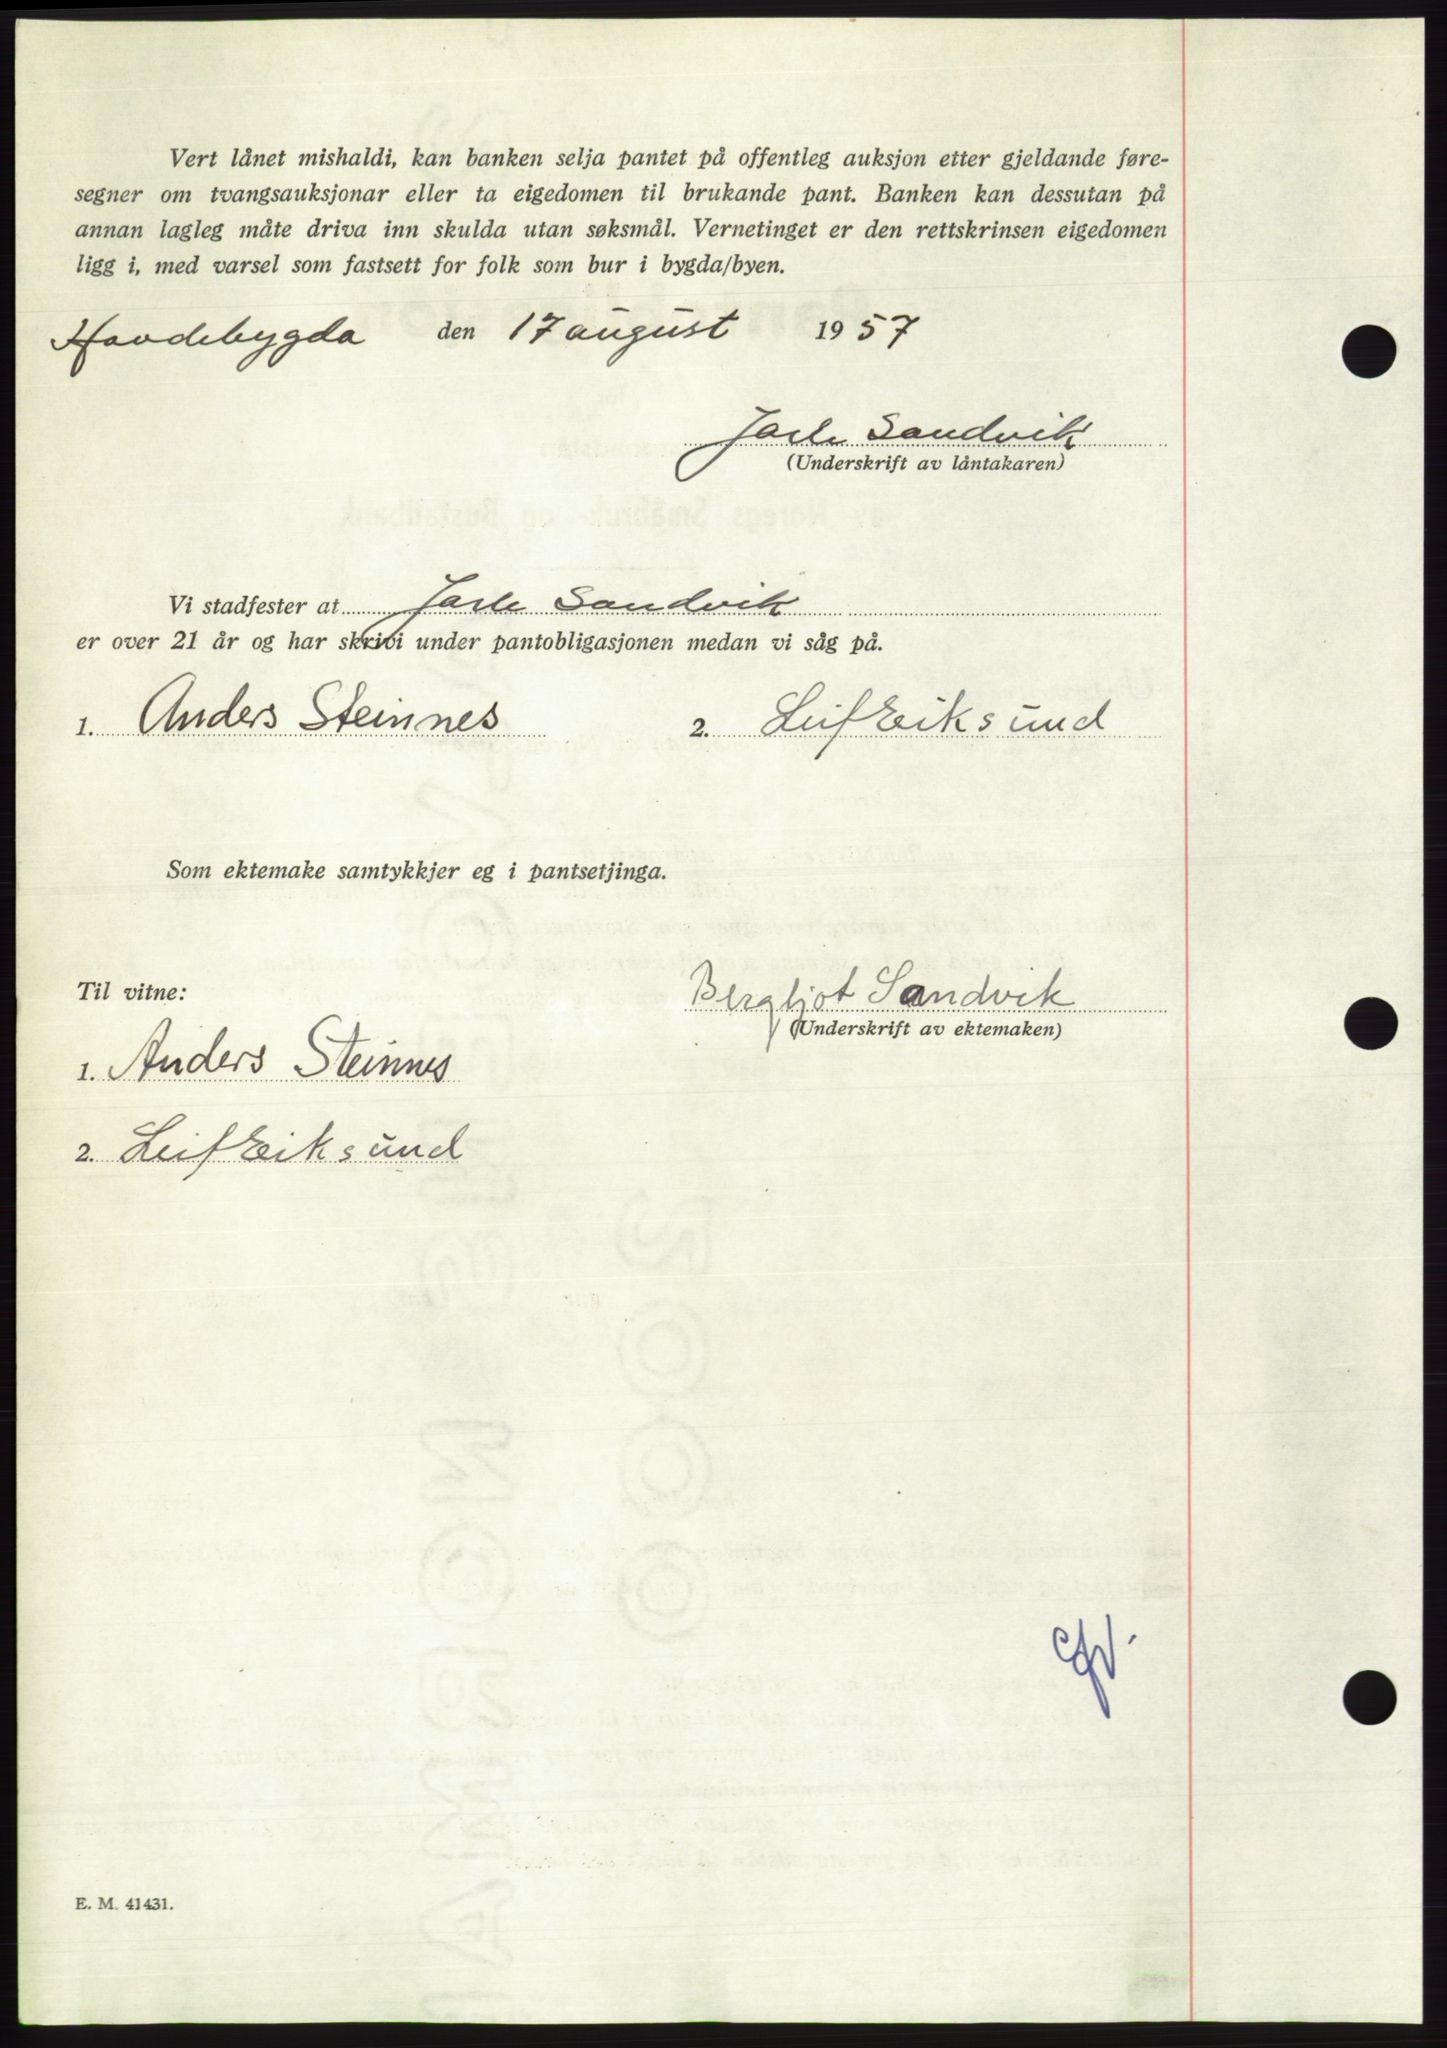 Vert lånet mishaldi, kan banken selja pantet på offentleg auksjon etter gjeldande føre-
segner om tvangsauksjonar eller ta eigedomen til brukande pant. Banken kan dessutan på
annan lagleg måte driva inn skulda utan søksmål. Vernetinget er den rettskrinsen eigedomen
ligg i, med varsel som fastsett for folk som bur i bygda/byen.
Havdebygda den 17 august 1957
Jarle Sandvik
(Underskrift av låntakaren)
Vi stadfester at Jarle Sandvik
er over 21 år og har skrivi under pantobligasjonen medan vi såg på.
1. Anders Steinnes 2. Leif Eiksund
Som ektemake samtykkjer eg i pantsetjinga.
Til vitne: Bergljot Sandvik
(Underskrift av ektemaken)
1. Anders Steinnes
2. Leif Eiksund
E. M. 41431.